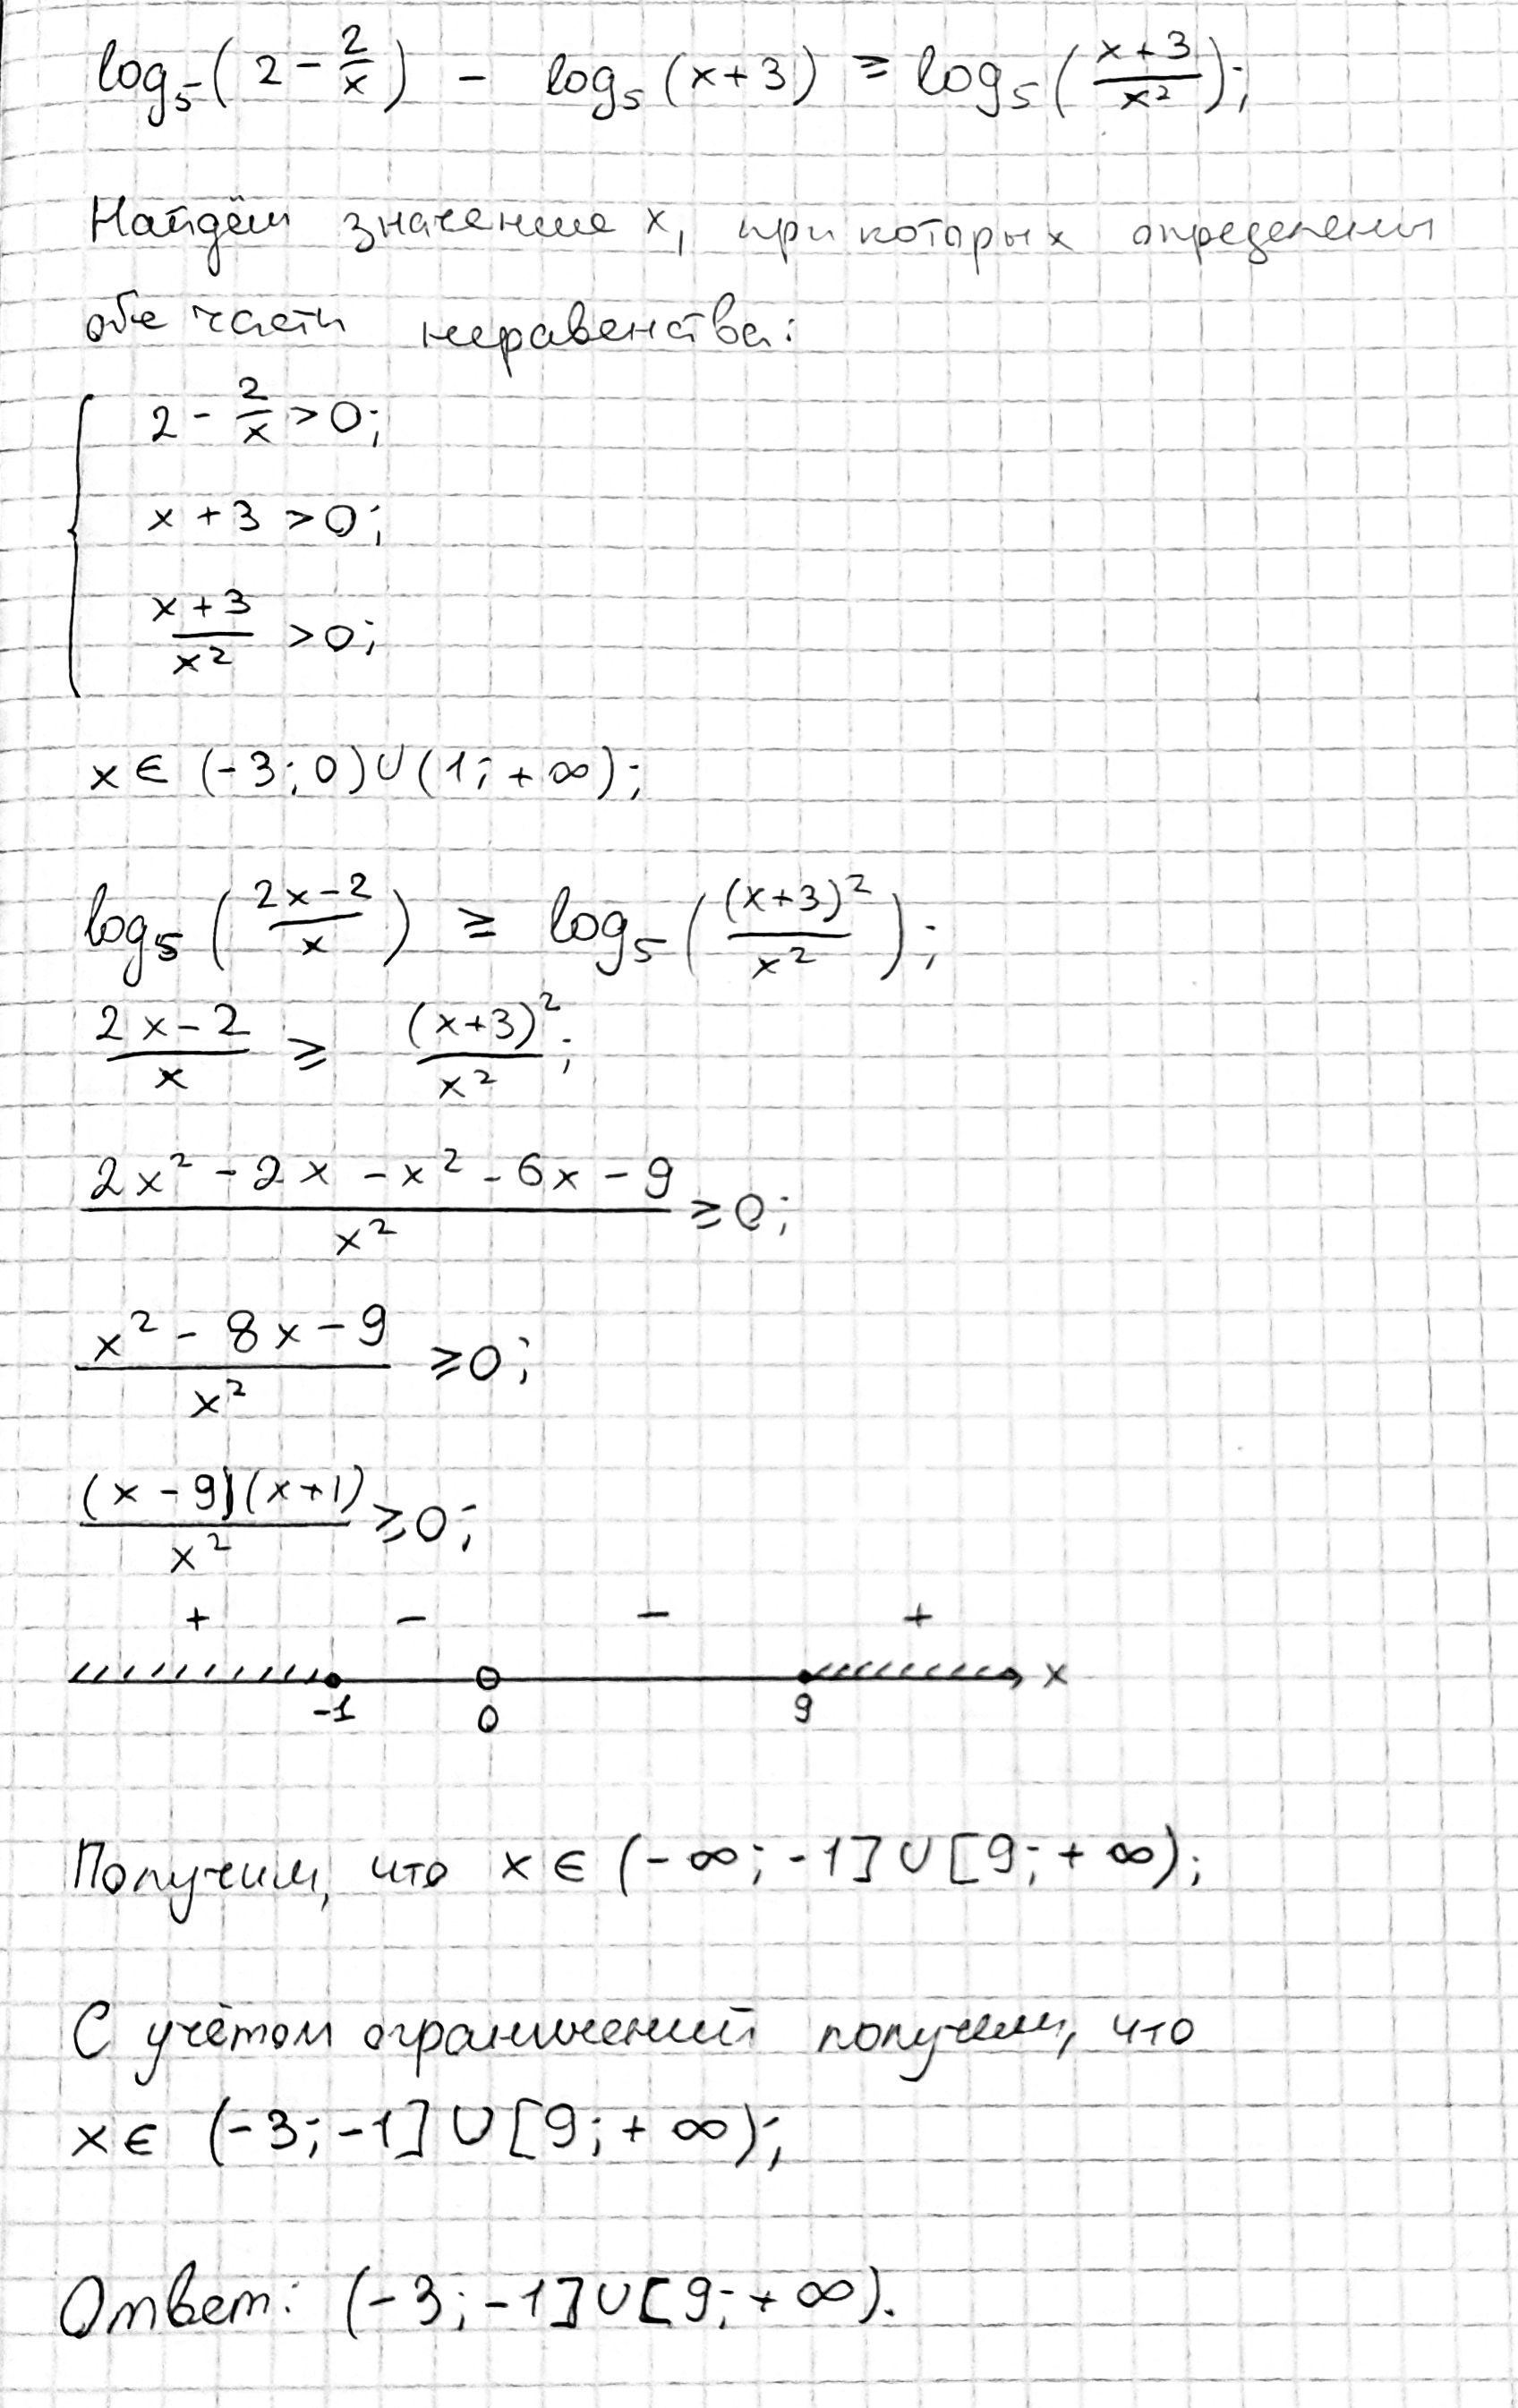 log₅(2 - 2/x) - log₅(x+3) ≥ log₅((x+3)/x²);
Найдём значение x, при которых определены
обе части неравенства:
{ 2 - 2/x > 0;
x + 3 > 0;
(x+3)/x² > 0;
x ∈ (-3; 0) ∪ (1; +∞);
log₅((2x-2)/x) ≥ log₅((x+3)²/x²);
(2x-2)/x ≥ (x+3)²/x²;
(2x² - 2x - x² - 6x - 9)/x² ≥ 0;
(x² - 8x - 9)/x² ≥ 0;
(x - 9)(x+1)/x² ≥ 0;
+ - - +
x
-1 0 9
Получим, что x ∈ (-∞; -1] ∪ [9; +∞);
С учётом ограничений получим, что
x ∈ (-3; -1] ∪ [9; +∞);
Ответ: (-3; -1] ∪ [9; +∞).